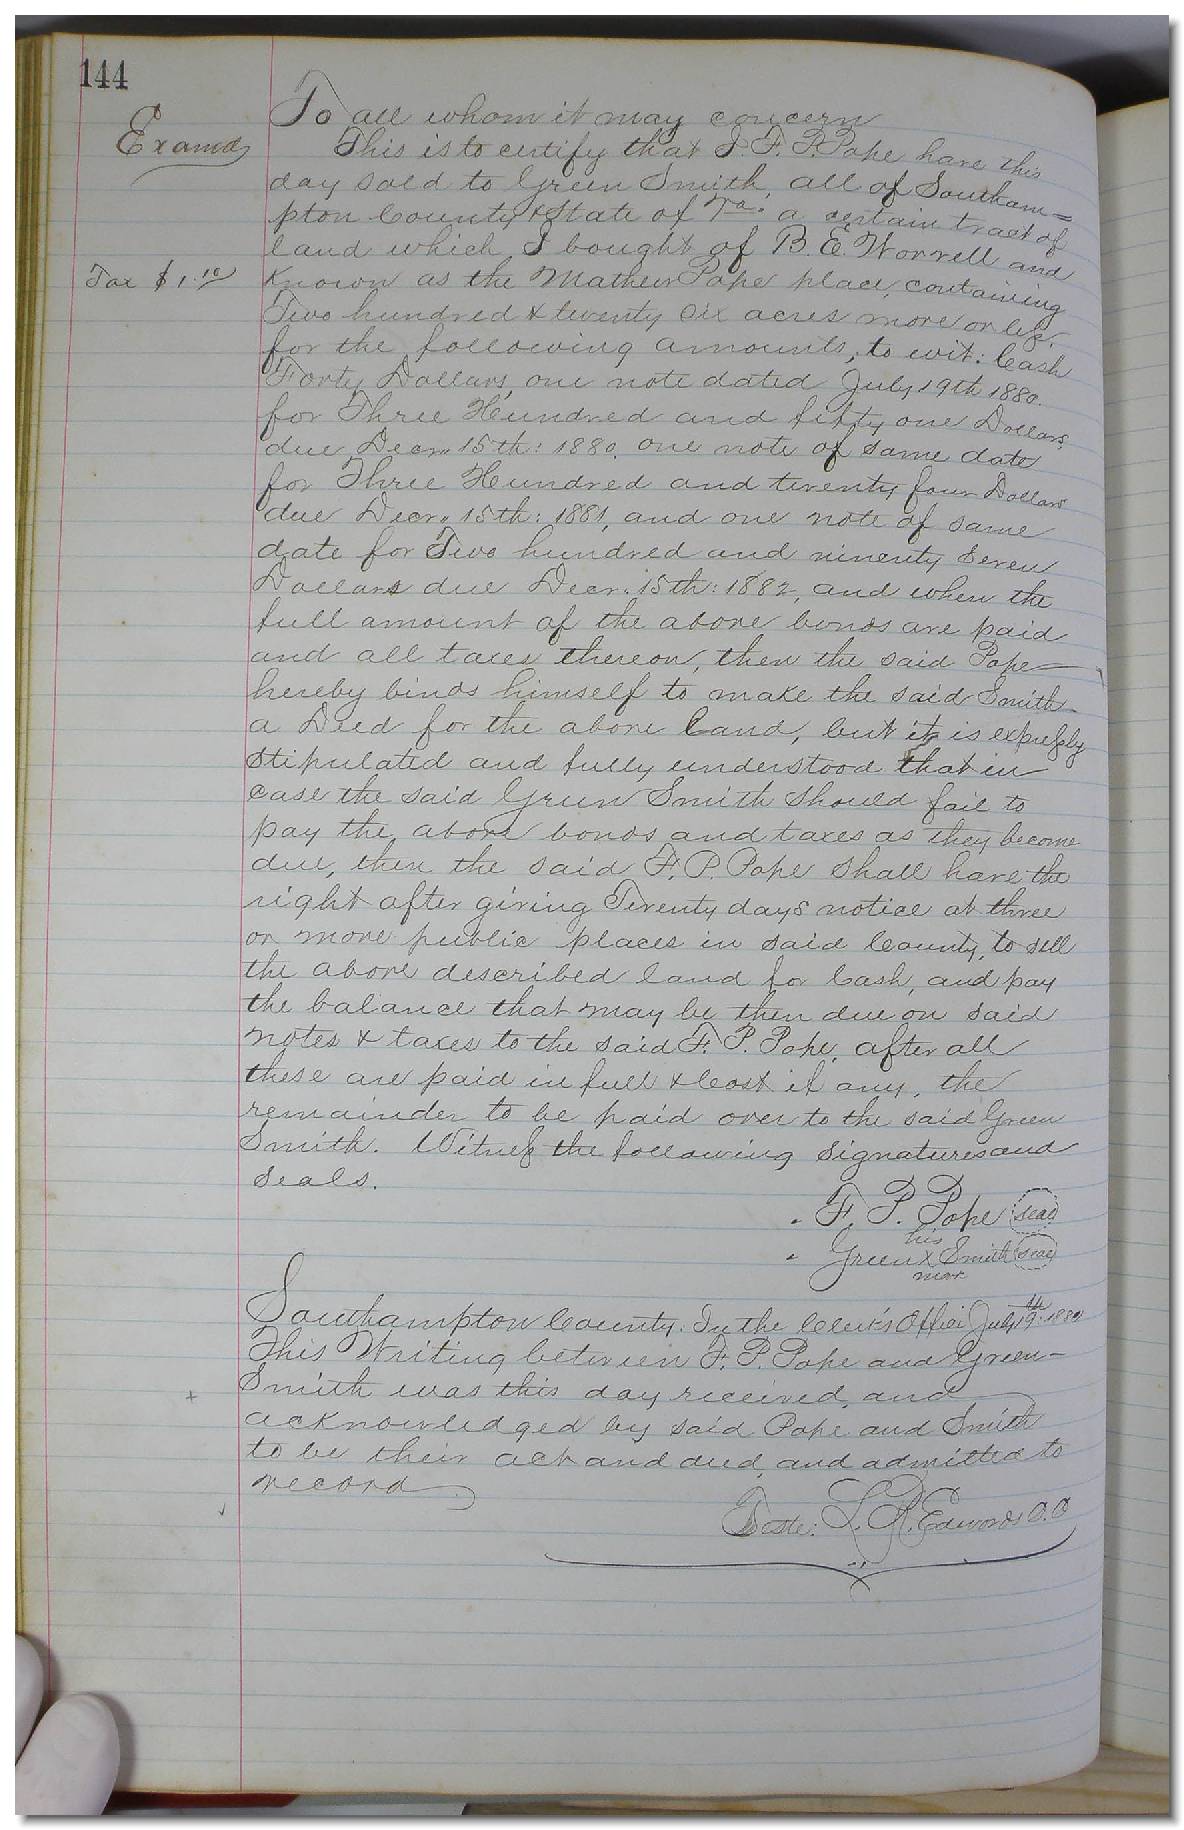 144
Examd
To all whom it may concern
This is to certify that I. F. P. Pope have this
day sold to Green Smith, all of Southam=
pton County & State of Va. a certain tract of
land which I bought of B. E. Worrell and
Tax $1.10
Known as the Mathew Pope place, containing
Two hundred & twenty six acres more or less.
for the following amounts, to wit: Cash
Forty Dollars, one note dated July 19th 1880.
for Three Hundred and fifty one Dollars,
due Decr. 15th: 1880. one note of same date
for Three Hundred and twenty four Dollars
due Decr. 15th: 1881, and one note of same
date for Two hundred and ninenty Seven
Dollars due Decr. 15th: 1882, and when the
full amount of the above bonds are paid
and all taxes thereon, then the said Pope
hereby binds himself to make the said Smith
a Deed for the above Land, but it is expressly
stipulated and fully understood that in
case the said Green Smith should fail to
pay the above bonds and taxes as they become
due, then the said F. P. Pope shall have the
right after giving Twenty days notice at three
or more public places in said County, to sell
the above described land for Cash, and pay
the balance that may be then due on said
notes & taxes to the said F. P. Pope, after all
these are paid in full & Cost if any, the
remainder to be paid over to the said Green
Smith. Witness the following signatures and
seals.
F. P. Pope (seal)
his
Green X Smith (seal)
mark
Southampton County. In the Clerk's Office July 19th: 1880
This Writing between F. P. Pope and Green
Smith was this day received, and
acknowledged by said Pope and Smith
to be their act and deed, and admitted to
record
Teste: L. R. Edwards C.C